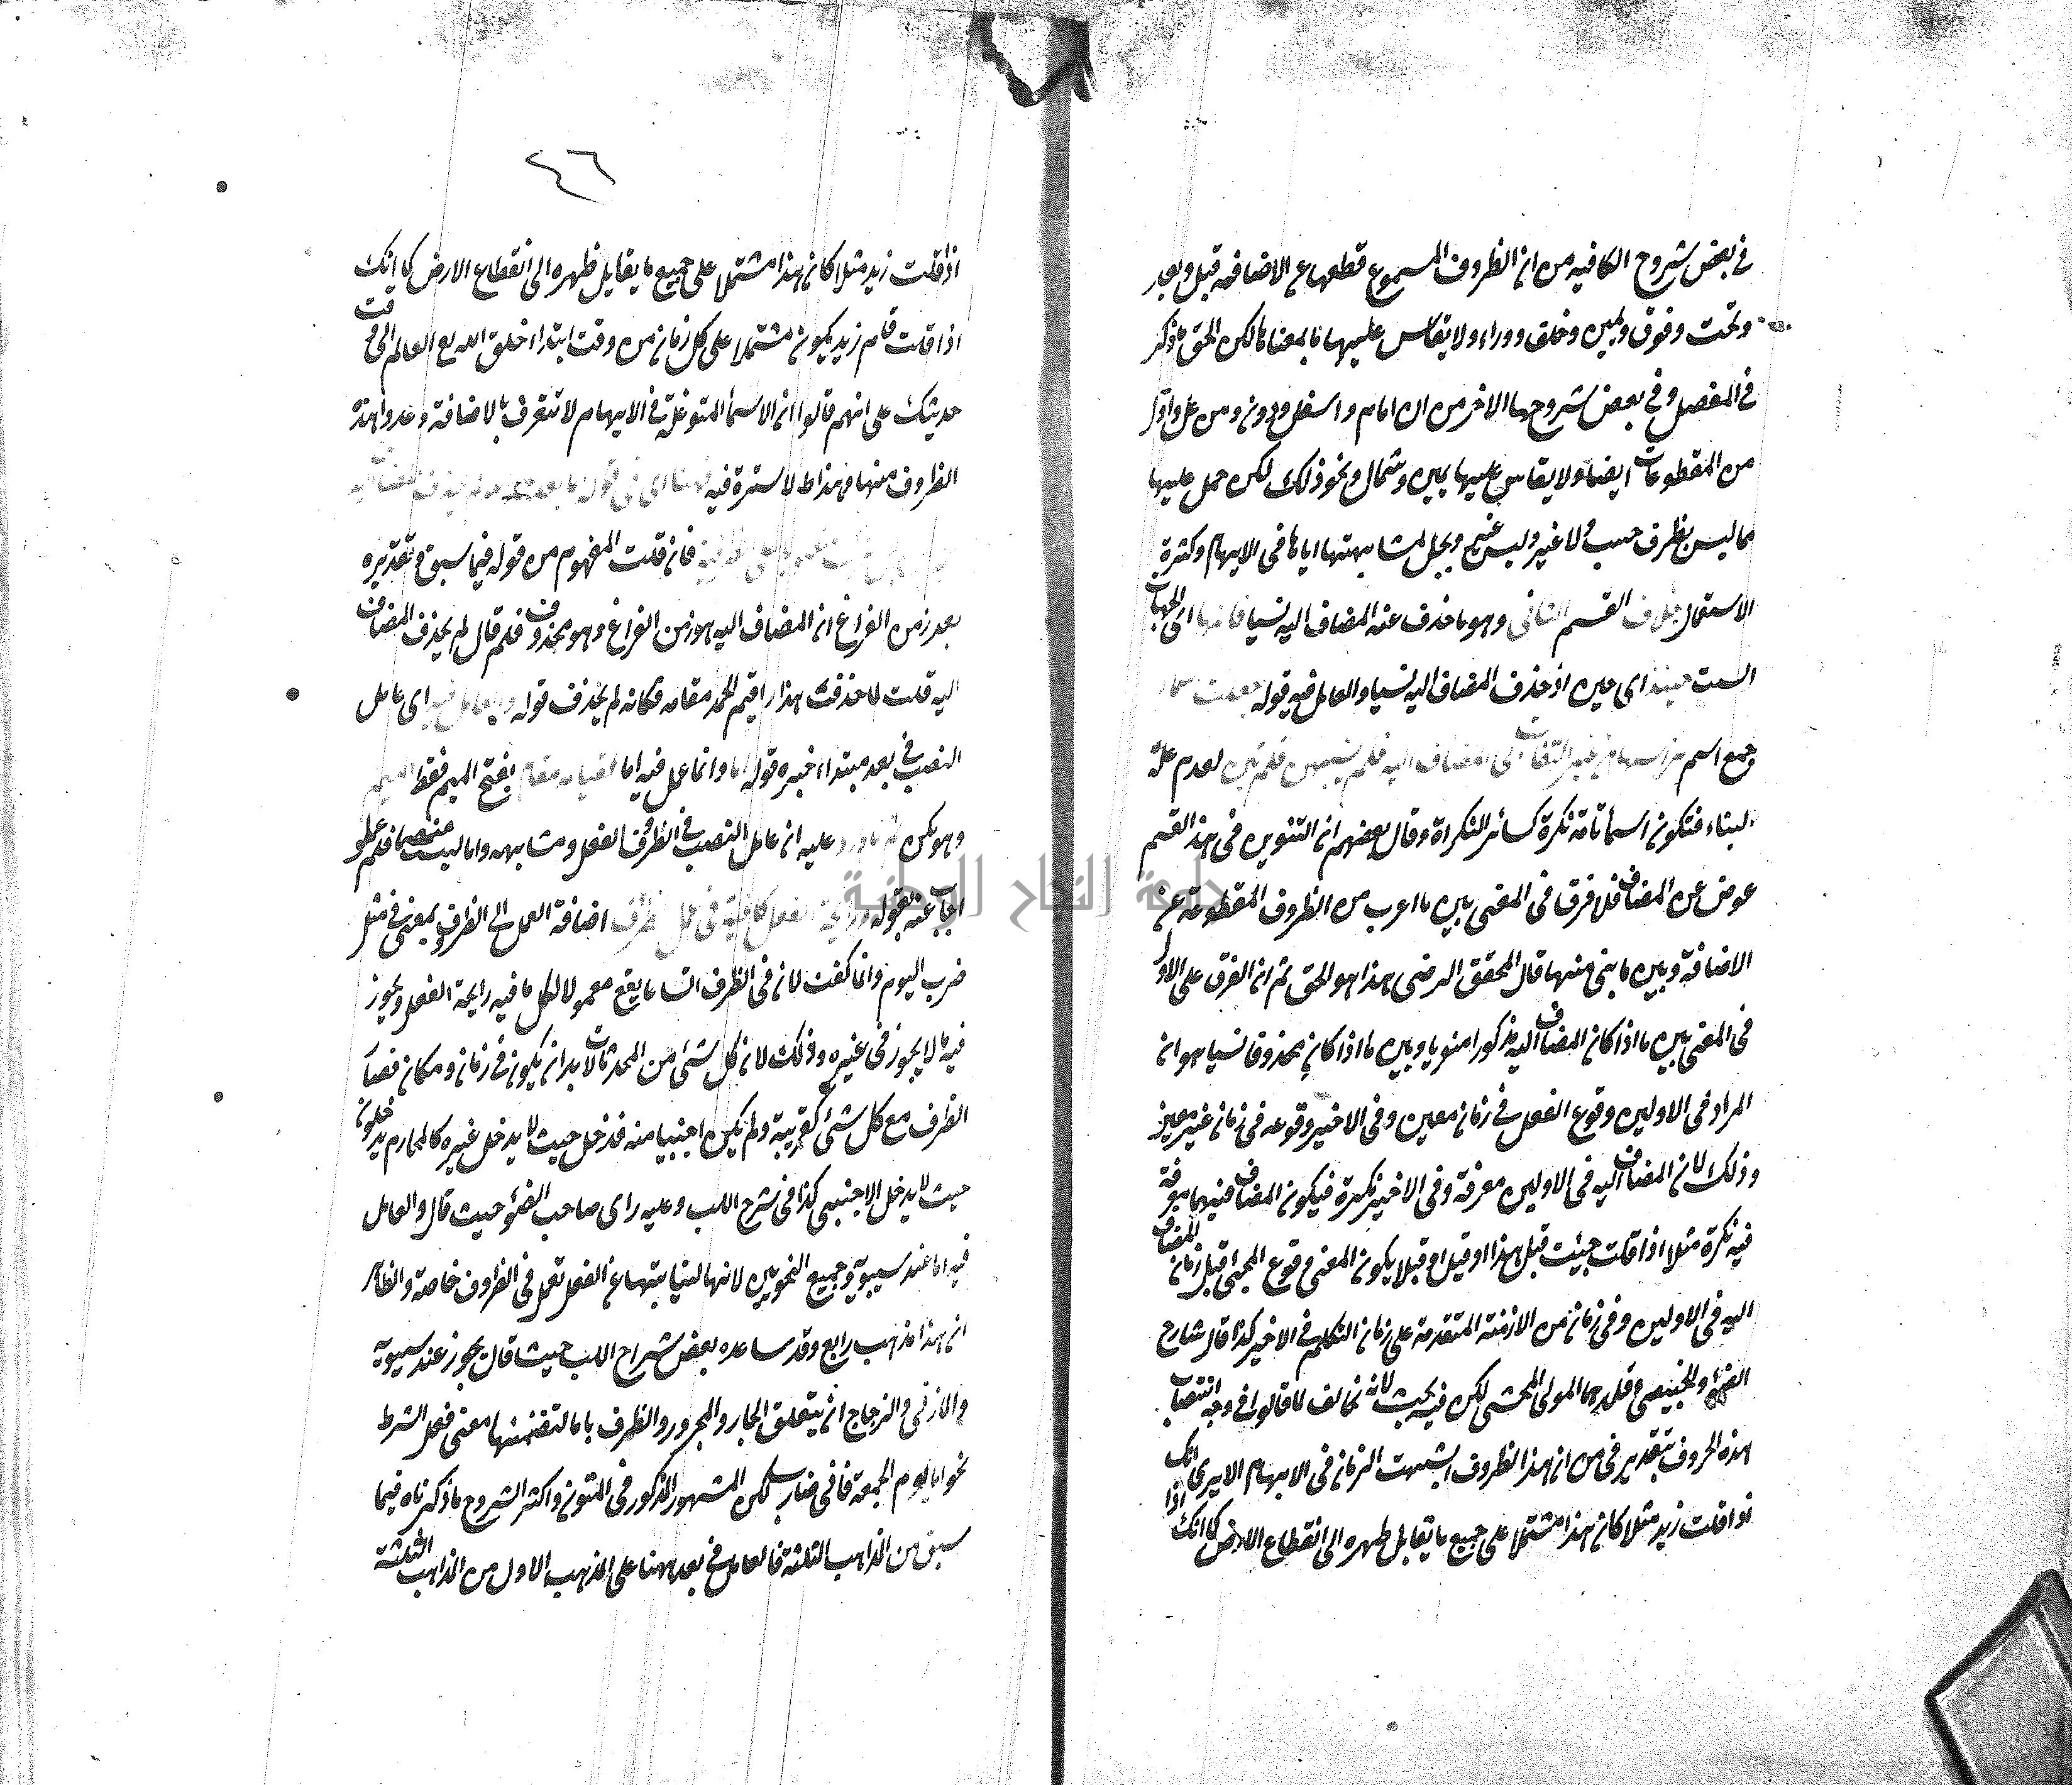 في بعض شروح الكافيه من ان الظروف المسموع قطعها عن الاضافة قبل وبعد
وتحت وفوق ويمين وخلف ووراء ولا يقاس عليها ما بمعناها لكن الحق ما ذكر
في المفصل وفي بعض شروحها الاخر من ان امام واسفل ودون ومن عل واول
من المقطوعات ايضا ولا يقاس عليها يمين وشمال ونحو ذلك لكن حمل عليها
مما ليس بظرف حسب ولا غير وليس غير وبجل لمشابهتها اياها في الابهام وكثرة
الاستعمال بخلاف القسم الثاني وهو ما حذف عنه المضاف اليه نسيا فانها اي الجهات
الست حينئذ اي حين اذ حذف المضاف اليه نسيا والعامل فيه قوله جعلت
جمع اسم من غير التفات الى المضاف اليه فلم لعدم علة
البناء فتكون اسماء تامة نكرة كسائر النكراة وقال بعضهم ان التنوين في هذا القسم
عوض عن المضاف فلا فرق في المعنى بين ما اعرب من الظروف المقطوعة عن
الاضافة وبين ما بني منها قال المحقق الرضى هذا هو الحق ثم ان الفرق على الاول
في المعنى بين ما اذا كان المضاف اليه مذكورا او منويا وبين ما اذا كان محذوفا نسيا هو ان
المراد في الاولين وقوع الفعل في زمان معين وفي الاخير وقوعه في زمان غير معين
وذلك لان المضاف اليه في الاولين معرفة وفي الاخير نكرة فيكون المضاف فيهما معرفة
فيه نكرة مثلا اذا قلت جيئت قبل هذا او قبل او قبلا يكون المعنى وقوع المجئ قبل زمان المضاف
اليه في الاولين وفي زمان من الازمنة المتقدمة على زمان التكلم في الاخير كذا قال شارح
الضوء والخبيصي وقلدهما المولى المحشى لكن فيه بحث لانه مخالف لما قالوا في وجه انتصاب
هذه الحروف بتقدير في من ان هذا الظروف اشبهت الزمان في الابهام الا يرى انك
اذا قلت زيد مثلا كان هذا مشتملا على جميع ما يقابل ظهره الى انقطاع الارض كما انك اذا
٤٦
اذا قلت زيد مثلا كان هذا مشتملا على جميع ما يقابل ظهره الى انقطاع الارض كما انك
اذا قلت قام زيد يكون مشتملا على كل زمان من وقت ابتداء خلق الله تع العالم الى وقت
حديثك على انهم قالوا ان الاسماء المتوغلة في الابهام لا تتعرف بالاضافة وعدوا هذه
الظروف منها وهذا مما لا سترة فيه
فان قلت المفهوم من قوله فيما سبق وتقديره
بعد زمن الفراغ ان المضاف اليه هو زمن الفراغ وهو محذوف فلم قال لم يحذف المضاف
اليه قلت لما حذفت هذا اقيم الحمد مقامه فكانه لم يحذف قوله والعامل فيه اي عامل
النصب في بعد مبتداء خبره قوله اما وانما عمل فيه اما لقيامه مقام بفتح الميم فقط
وهو يكن عليه ان عامل النصب في الظرف الفعل ومشابهه واما ليست منهما فلم عملو
اجاب عنه بقوله ورايحة الفعل كافية في عمل الظرف اضافة العمل الى الظرف بمعنى في مثل
ضرب اليوم وانما كفت لان في الظرف اتساعا يقع معمولا لكل ما فيه رايحة الفعل ويجوز
فيه ما لا يجوز في غيره وذلك لان كل شئ من المحدثات لا بد ان يكون في زمان ومكان فصار
الظرف مع كل شئ كقريبة ولم يكن اجنبيا منه فدخل حيث لا يدخل غيره كالمحارم يدخلون
حيث لا يدخل الاجنبي كذا في شرح اللب وعليه راى صاحب الضوء حيث قال والعامل
فيه اما عند سيبويه وجميع النحويين لانها لنيابتها عن الفعل تعمل في الظروف خاصة والظاهر
ان هذا مذهب رابع وقد ساعده بعض شراح اللب حيث قال يجوز عند سيبويه
والمازني والزجاج ان يتعلق الجار والمجرور والظرف باما لتضمنها معنى فعل الشرط
نحو اما يوم الجمعة فاني ضارب لكن المشهور المذكور في المتون واكثر الشروح ما ذكرناه فيما
سبق من المذاهب الثلثة فالعامل في بعد ههنا على المذهب الاول من المذاهب الثلثة
جامعة النجاح الوطنية